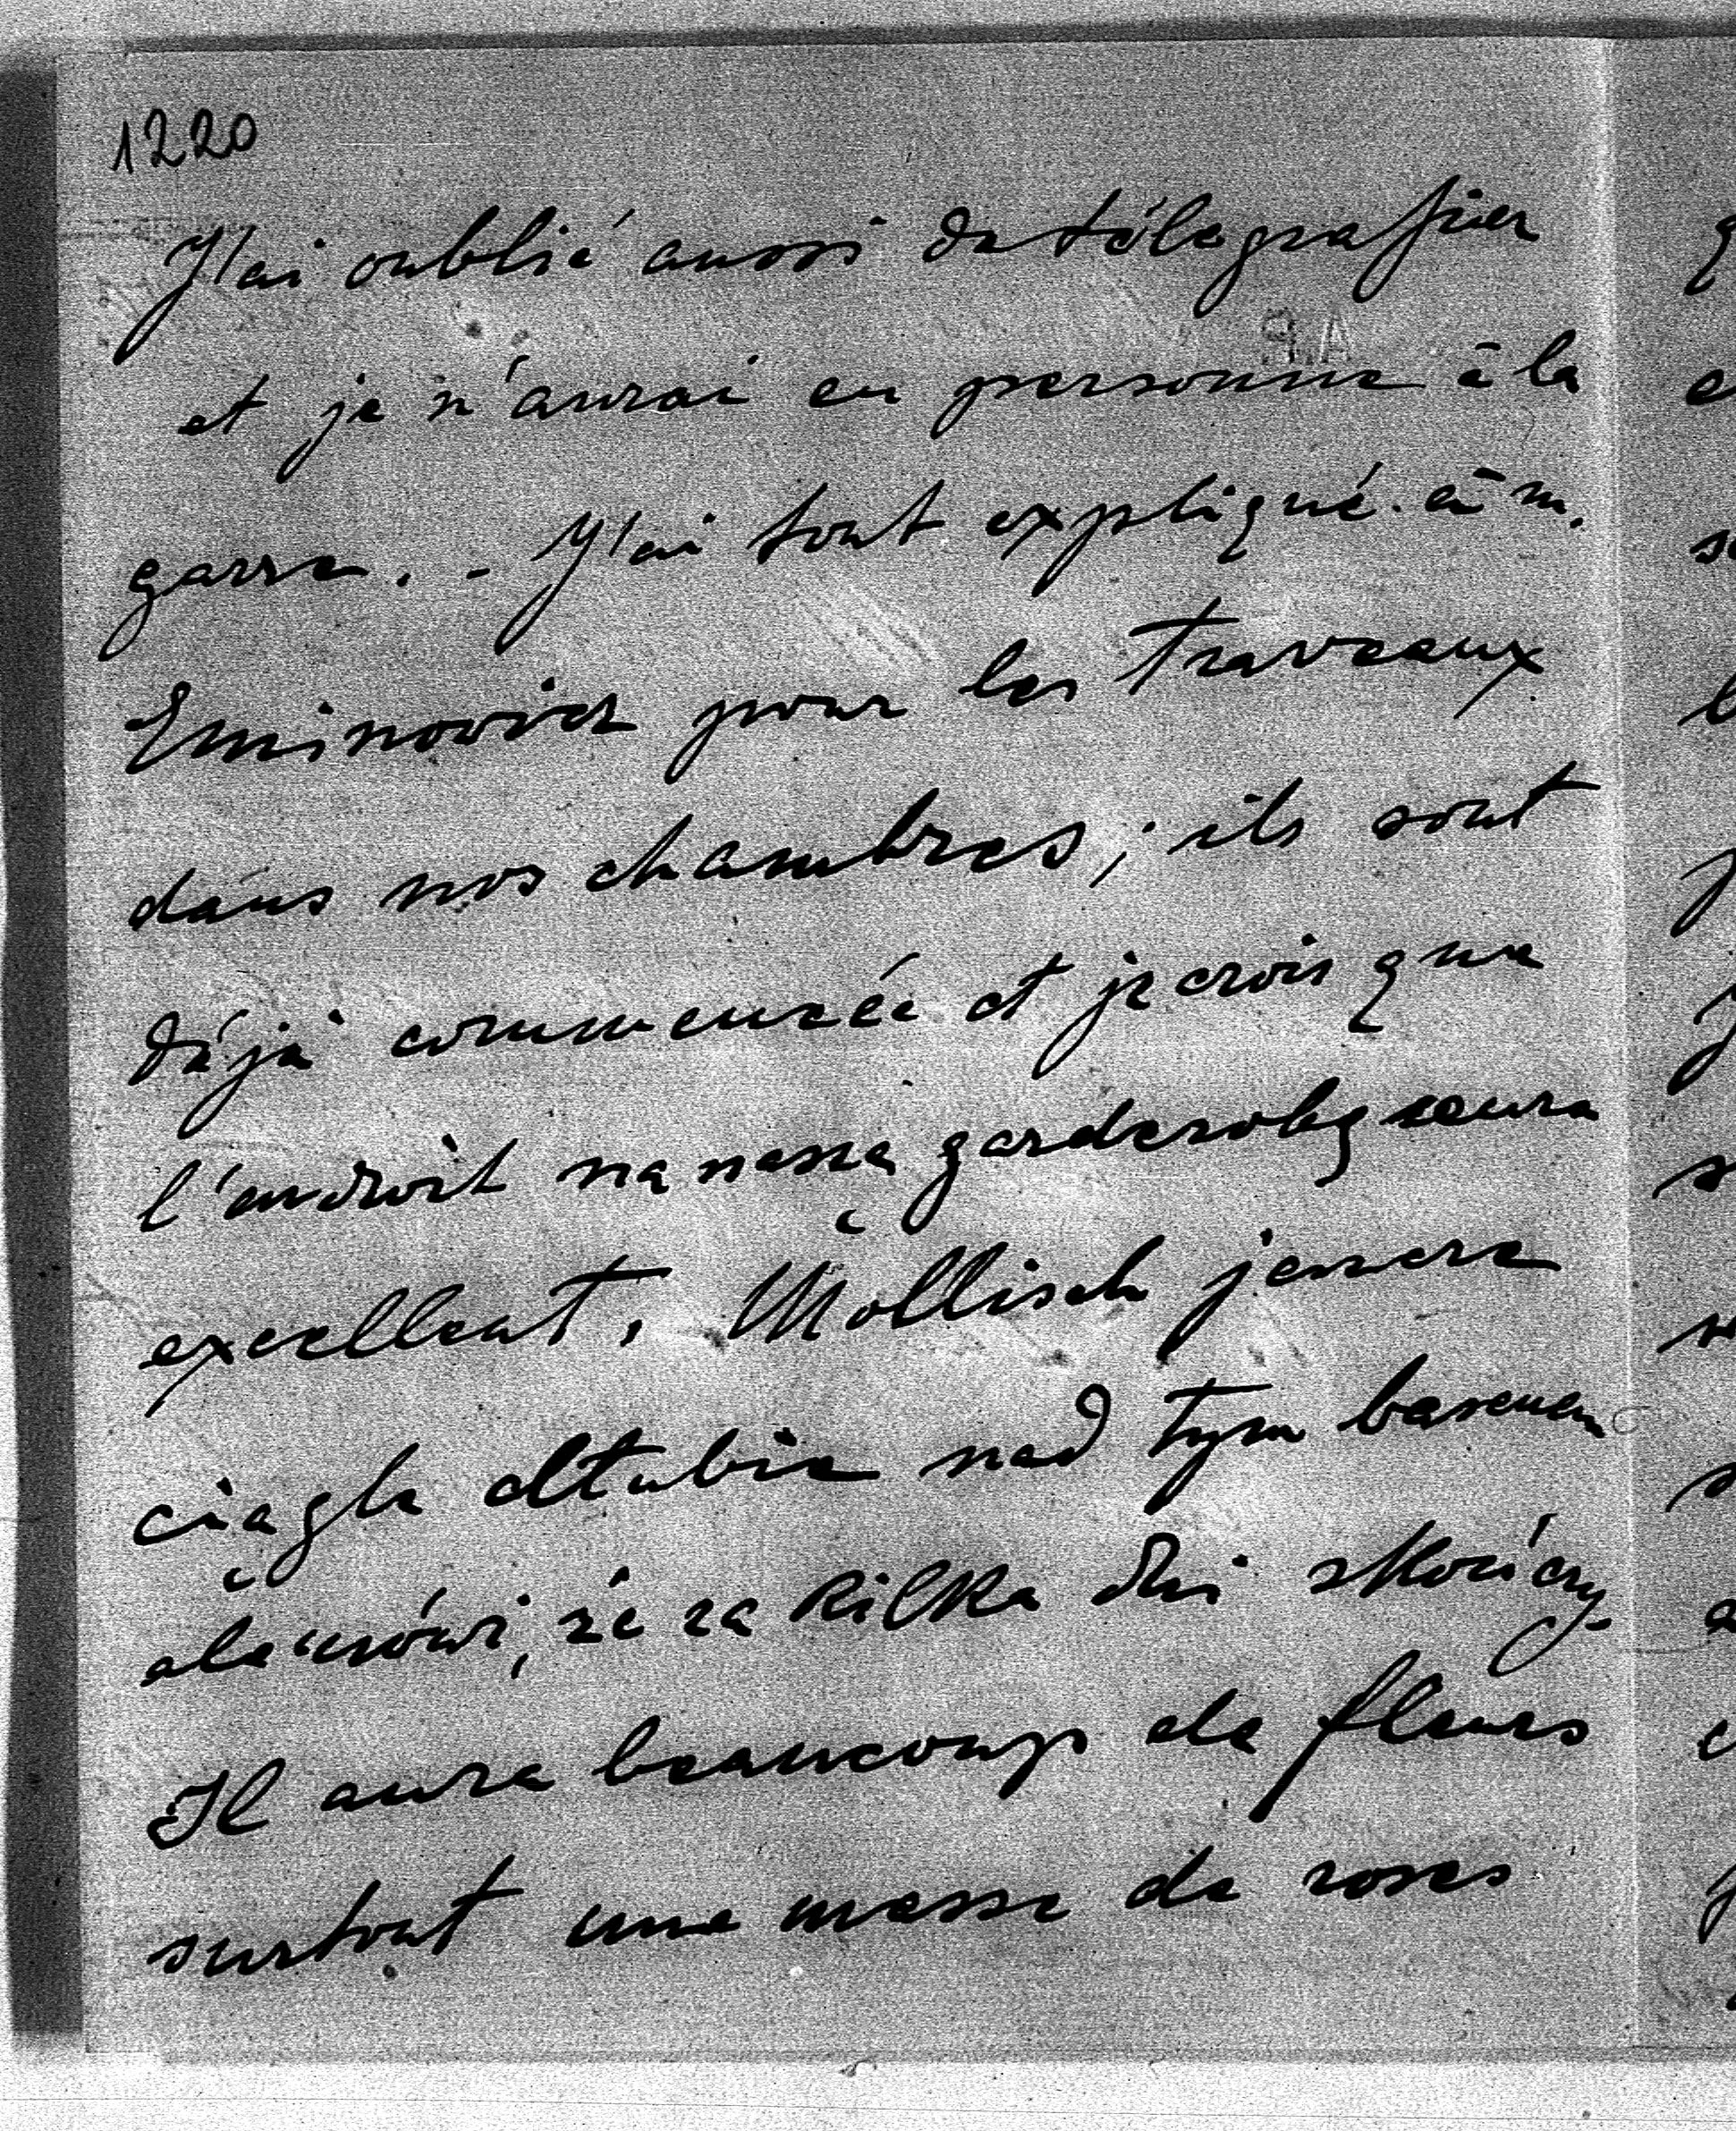 1220
J'ai oublié aussi de télégrafier
et je n'aurai eu personne à la
garre. - J'ai tout expliqué à m.
Eminowicz pour les traveaux
dans nos chambres; ils sont
déjà commencée et je crois que
l'endroit na naszą garderobę sera
excellent. Mollisch jeszcze
ciągle dłubie nad tym basenem
ale mówi, że za kilka dni skończy
Il aura beaucoup de fleurs
surtout une masse de roses